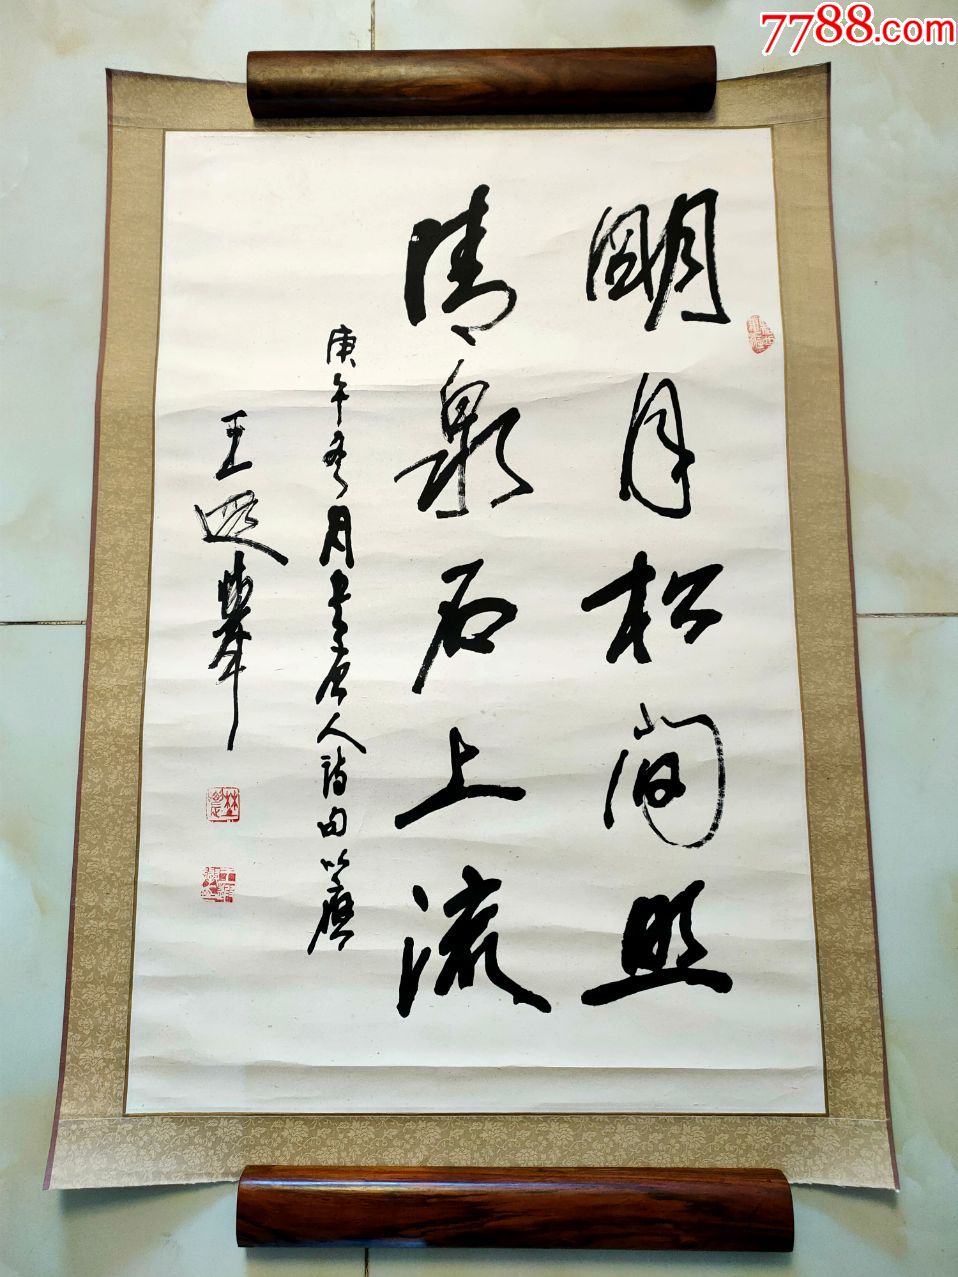 7788.com
明月松間照
清泉石上流
庚午冬月書唐人詩句以應
王遐舉